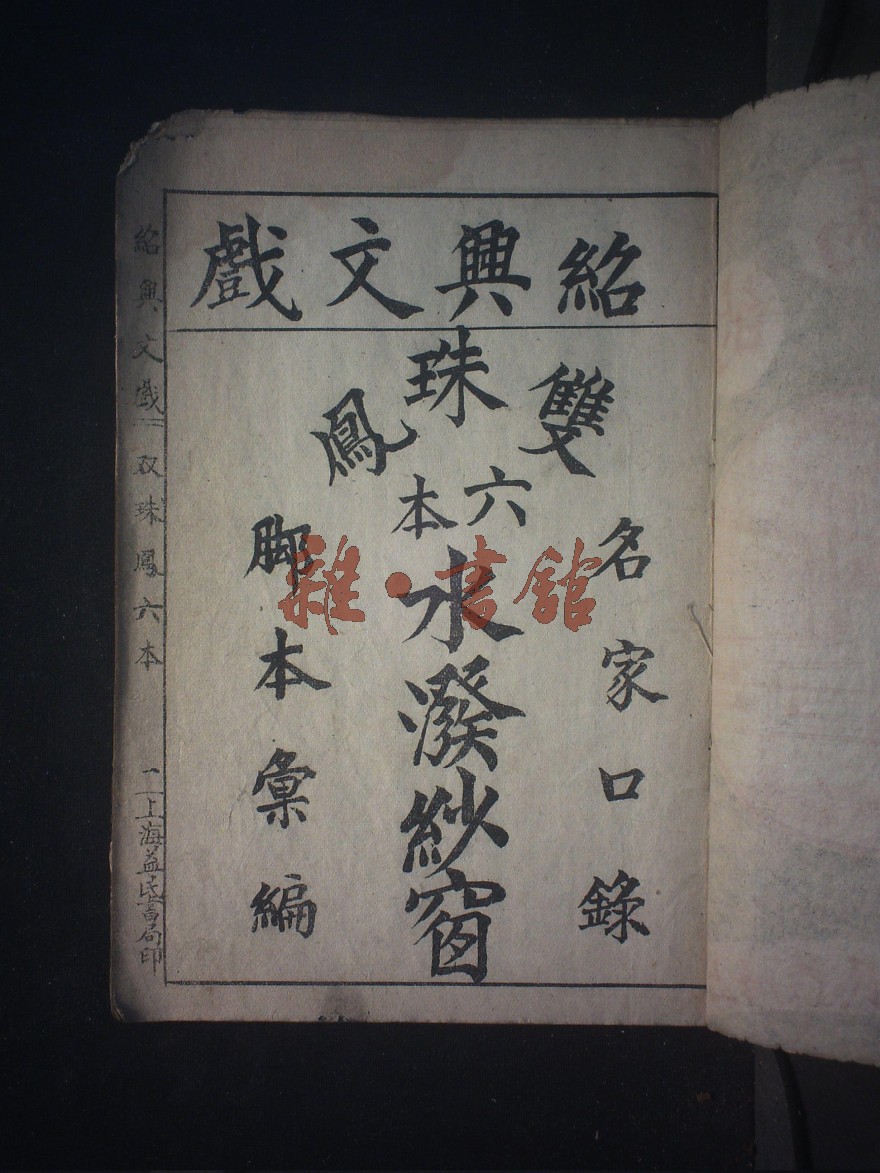 紹興文戲
雙珠鳳
六本
名家口錄
水潑紗窗
脚本彙編
紹興文戲 双珠鳳六本 一 上海益民書局印
雜·書館